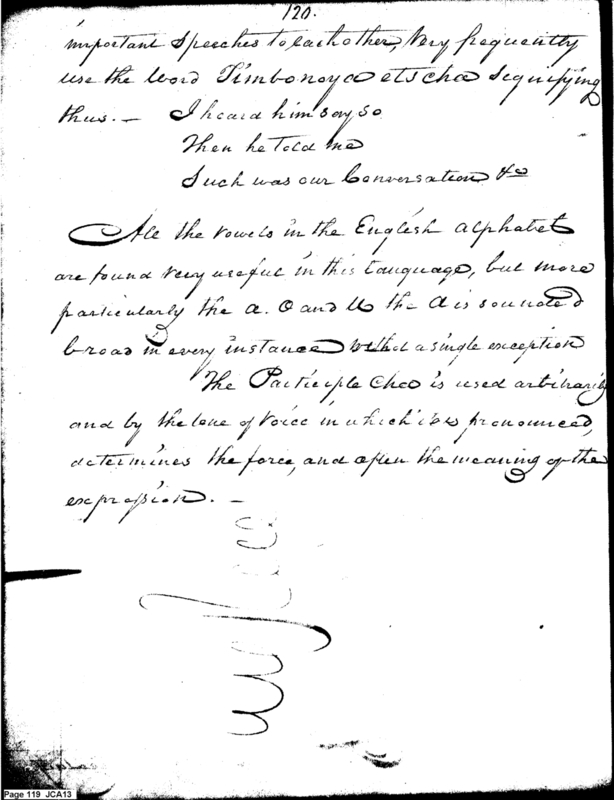 120.
important Speeches to each other, Very frequently
use the word Timbonoya etscha Signifying
thus. — I heard him say so
Then he Told me
Such was our Conversation &c
All the vowels in the English alphabet
are found very useful in this Language, but more
particularly the a. O and U the A is sounded
broad in every instance without a single exception
The Participle Cha is used arbitrarily
and by the tone of Voice in which it is pronounced,
determines the force, and often the meaning of the
expression. —
Page 119 JCA13